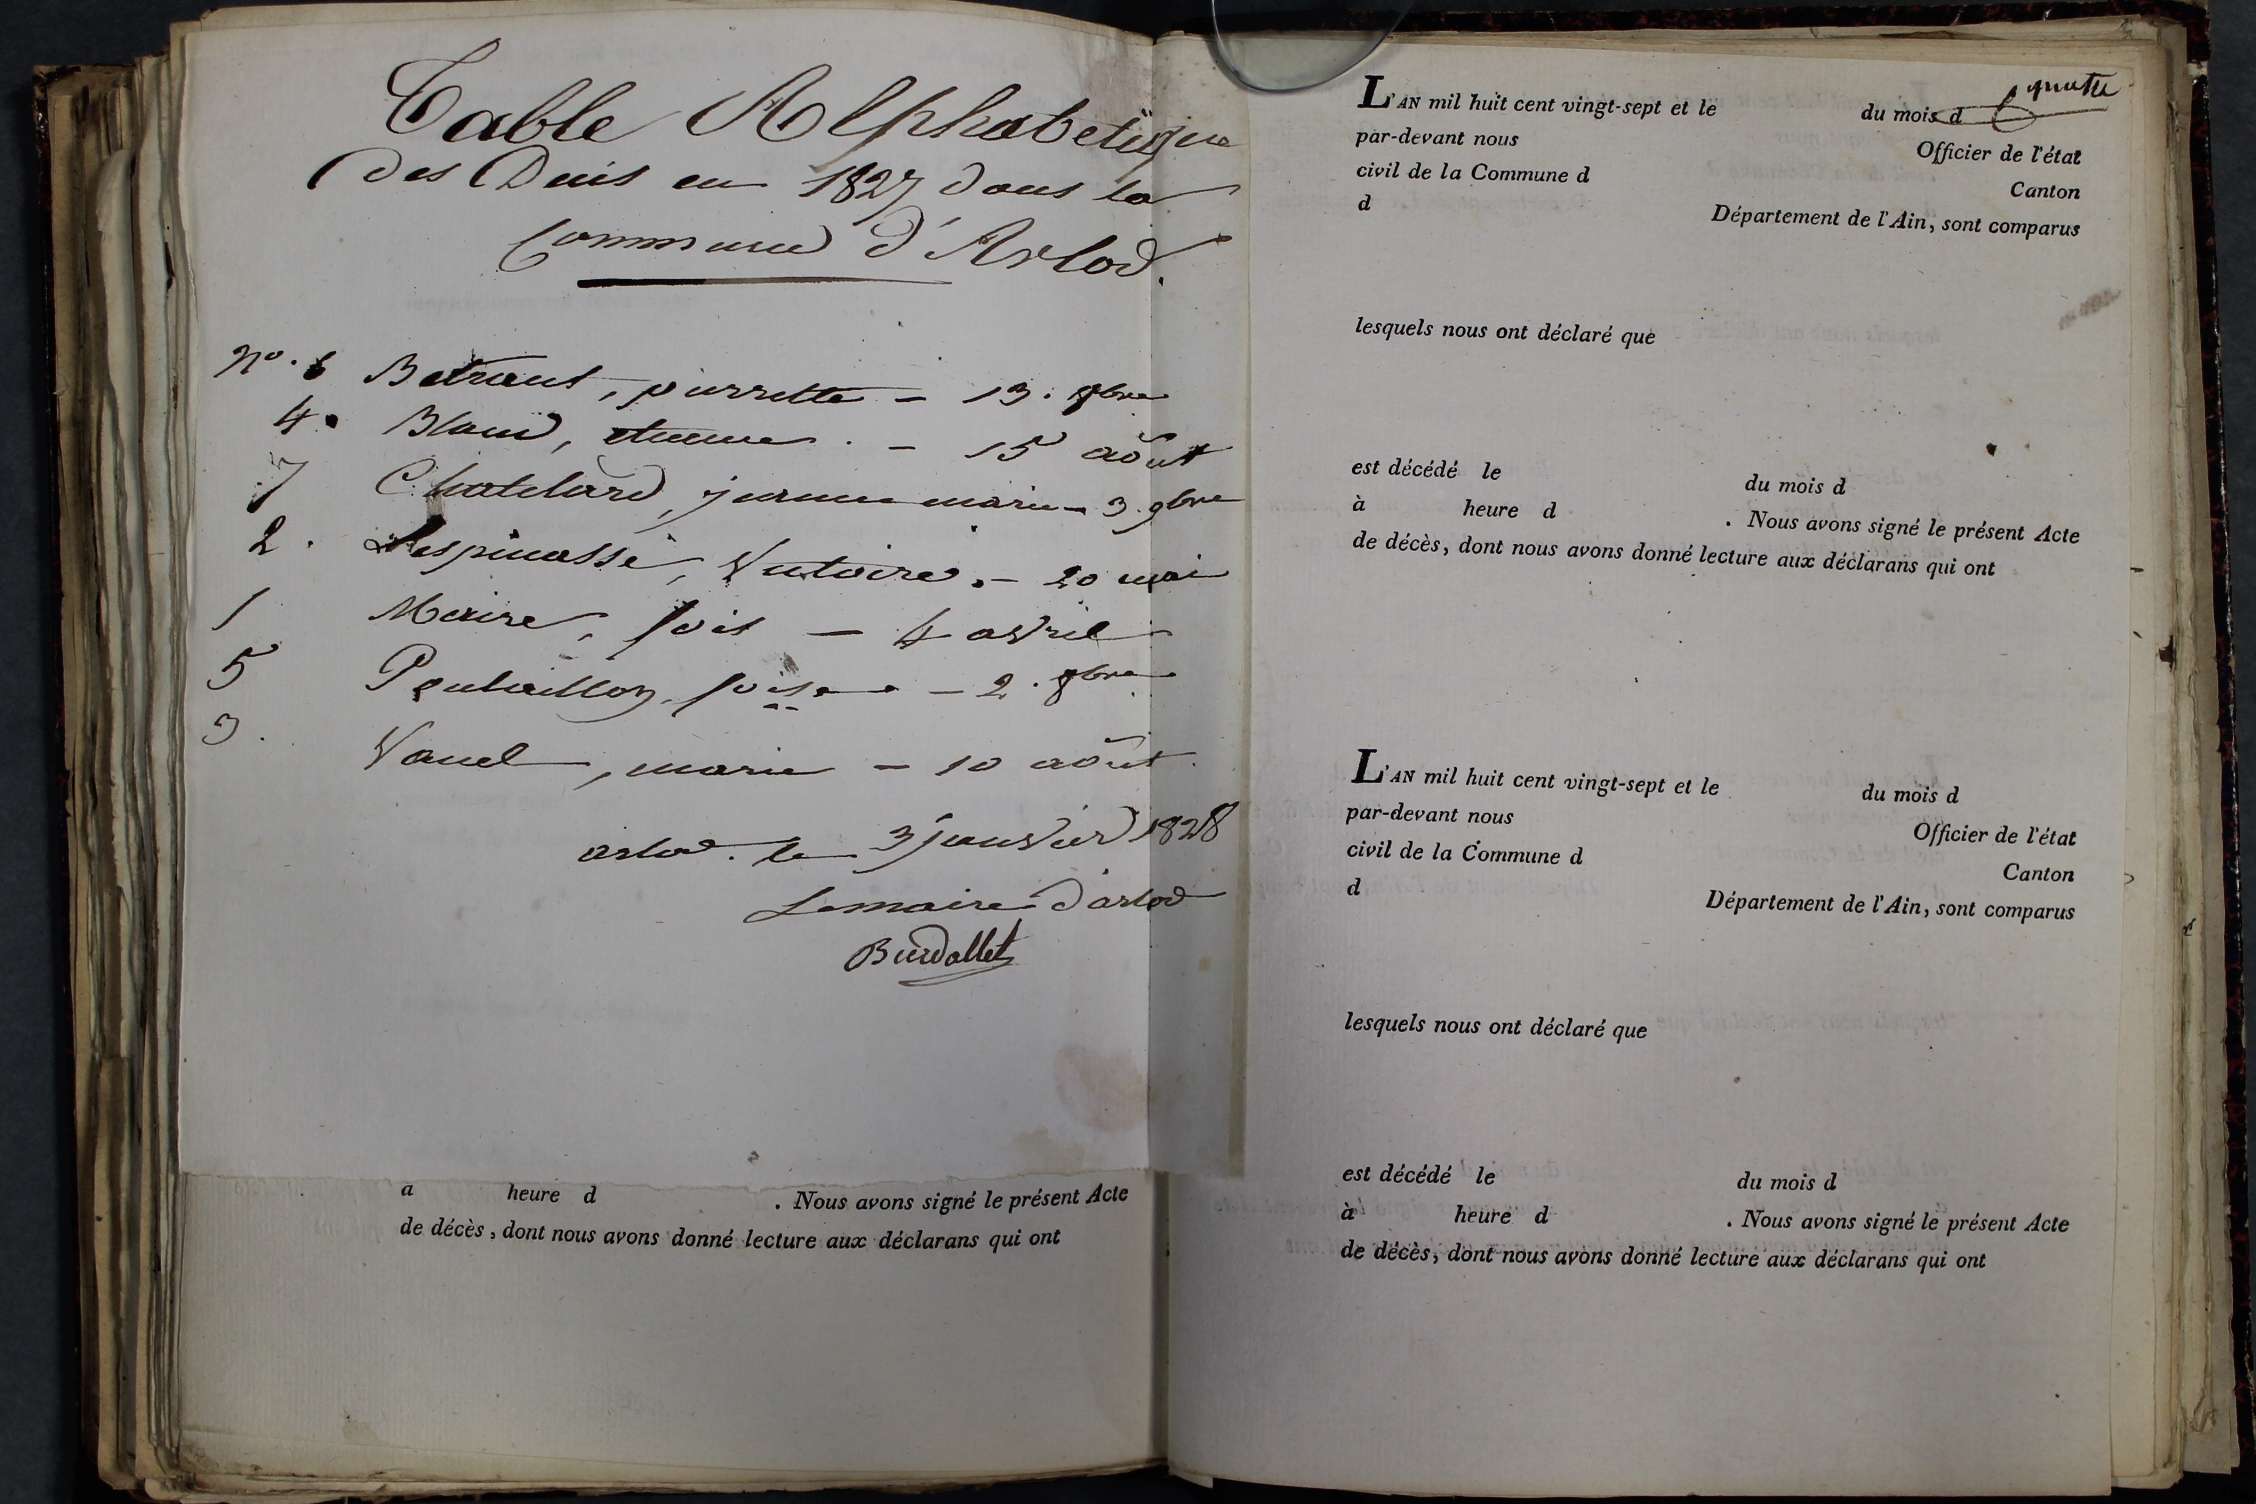 Table Alphabetique
des Decès en 1827 dans la
Commune d'Arlod.
No. 6 Betraut, pierrette - 13. 8bre
4. Blanc, etienne. - 15 août
7 Chatelard, jeanne marie - 3. 9bre
2. Lespinasse, Victoire. - 20 mai
1 Maire, fois - 4 avril
5 Poutaillon, foise - 2. 8bre
3. Vauel, marie - 10 août.
arlod. le 3 janvier 1828
Lemaire d'arlod
Burdallet
a heure d . Nous avons signé le présent Acte
de décès, dont nous avons donné lecture aux déclarans qui ont
quatre
L'AN mil huit cent vingt-sept et le du mois d
par-devant nous Officier de l'état
civil de la Commune d Canton
d Département de l'Ain, sont comparus
lesquels nous ont déclaré que
est décédé le du mois d
à heure d . Nous avons signé le présent Acte
de décès, dont nous avons donné lecture aux déclarans qui ont
L'AN mil huit cent vingt-sept et le du mois d
par-devant nous Officier de l'état
civil de la Commune d Canton
d Département de l'Ain, sont comparus
lesquels nous ont déclaré que
est décédé le du mois d
à heure d . Nous avons signé le présent Acte
de décès, dont nous avons donné lecture aux déclarans qui ont